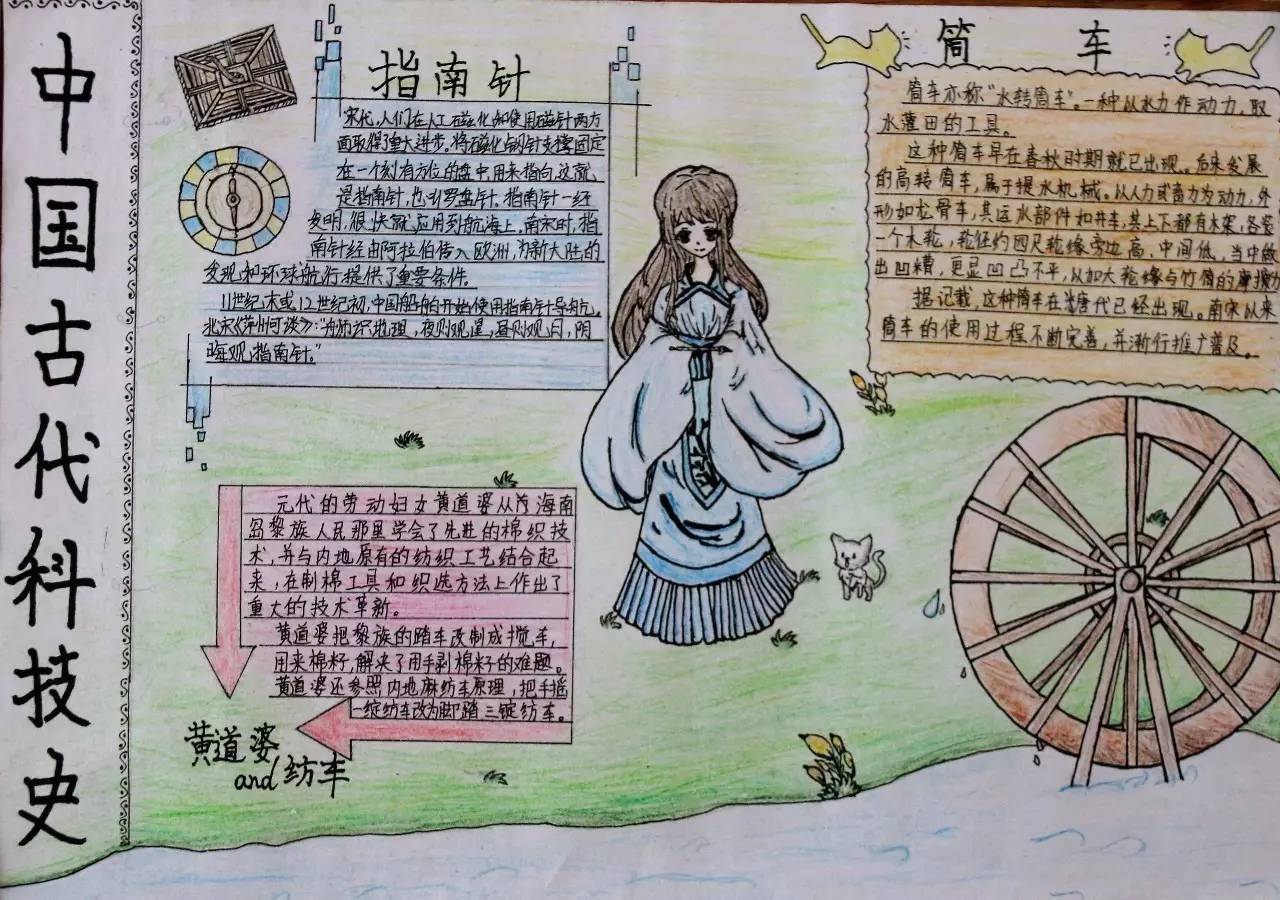 中国古代科技史
指南针
宋代,人们在人工磁化和使用磁针两方
面取得了重大进步。将磁化的钢针支撑固定
在一个刻有方位的盘中用来指向,这就
是指南针,也叫罗盘针。指南针一经
发明,很快就应用到航海上,南宋时,指
南针经由阿拉伯传入欧洲,为新大陆的
发现和环球航行提供了重要条件。
11世纪末或12世纪初,中国船舶开始使用指南针导航。
北宋《萍州可谈》:"舟师识地理,夜则观星,昼则观日,阴
晦观指南针。"
筒车
筒车亦称"水转筒车"。一种以水力作动力,取
水灌田的工具。
这种筒车早在春秋时期就已出现。后来发展
的高转筒车,属于提水机械。以人力或畜力为动力,外
形如龙骨车,其运水部件如井车,其上下都有木架,各装
一个木轮,轮径约四尺轮缘旁边高、中间低,当中做
出凹糟,更显凹凸不平,以加大轮缘与竹筒的摩擦力
据记载,这种筒车在唐代已经出现。南宋以来
筒车的使用过程不断完善,并渐行推广普及。
元代的劳动妇女黄道婆从海南
岛黎族人民那里学会了先进的棉织技
术,并与内地原有的纺织工艺结合起
来,在制棉工具和织造方法上作出了
重大的技术革新。
黄道婆把黎族的踏车改制成搅车,
用来棉籽,解决了用手剥棉籽的难题。
黄道婆还参照内地麻纺车原理,把手摇
一锭纺车改为脚踏三锭纺车。
黄道婆
and纺车